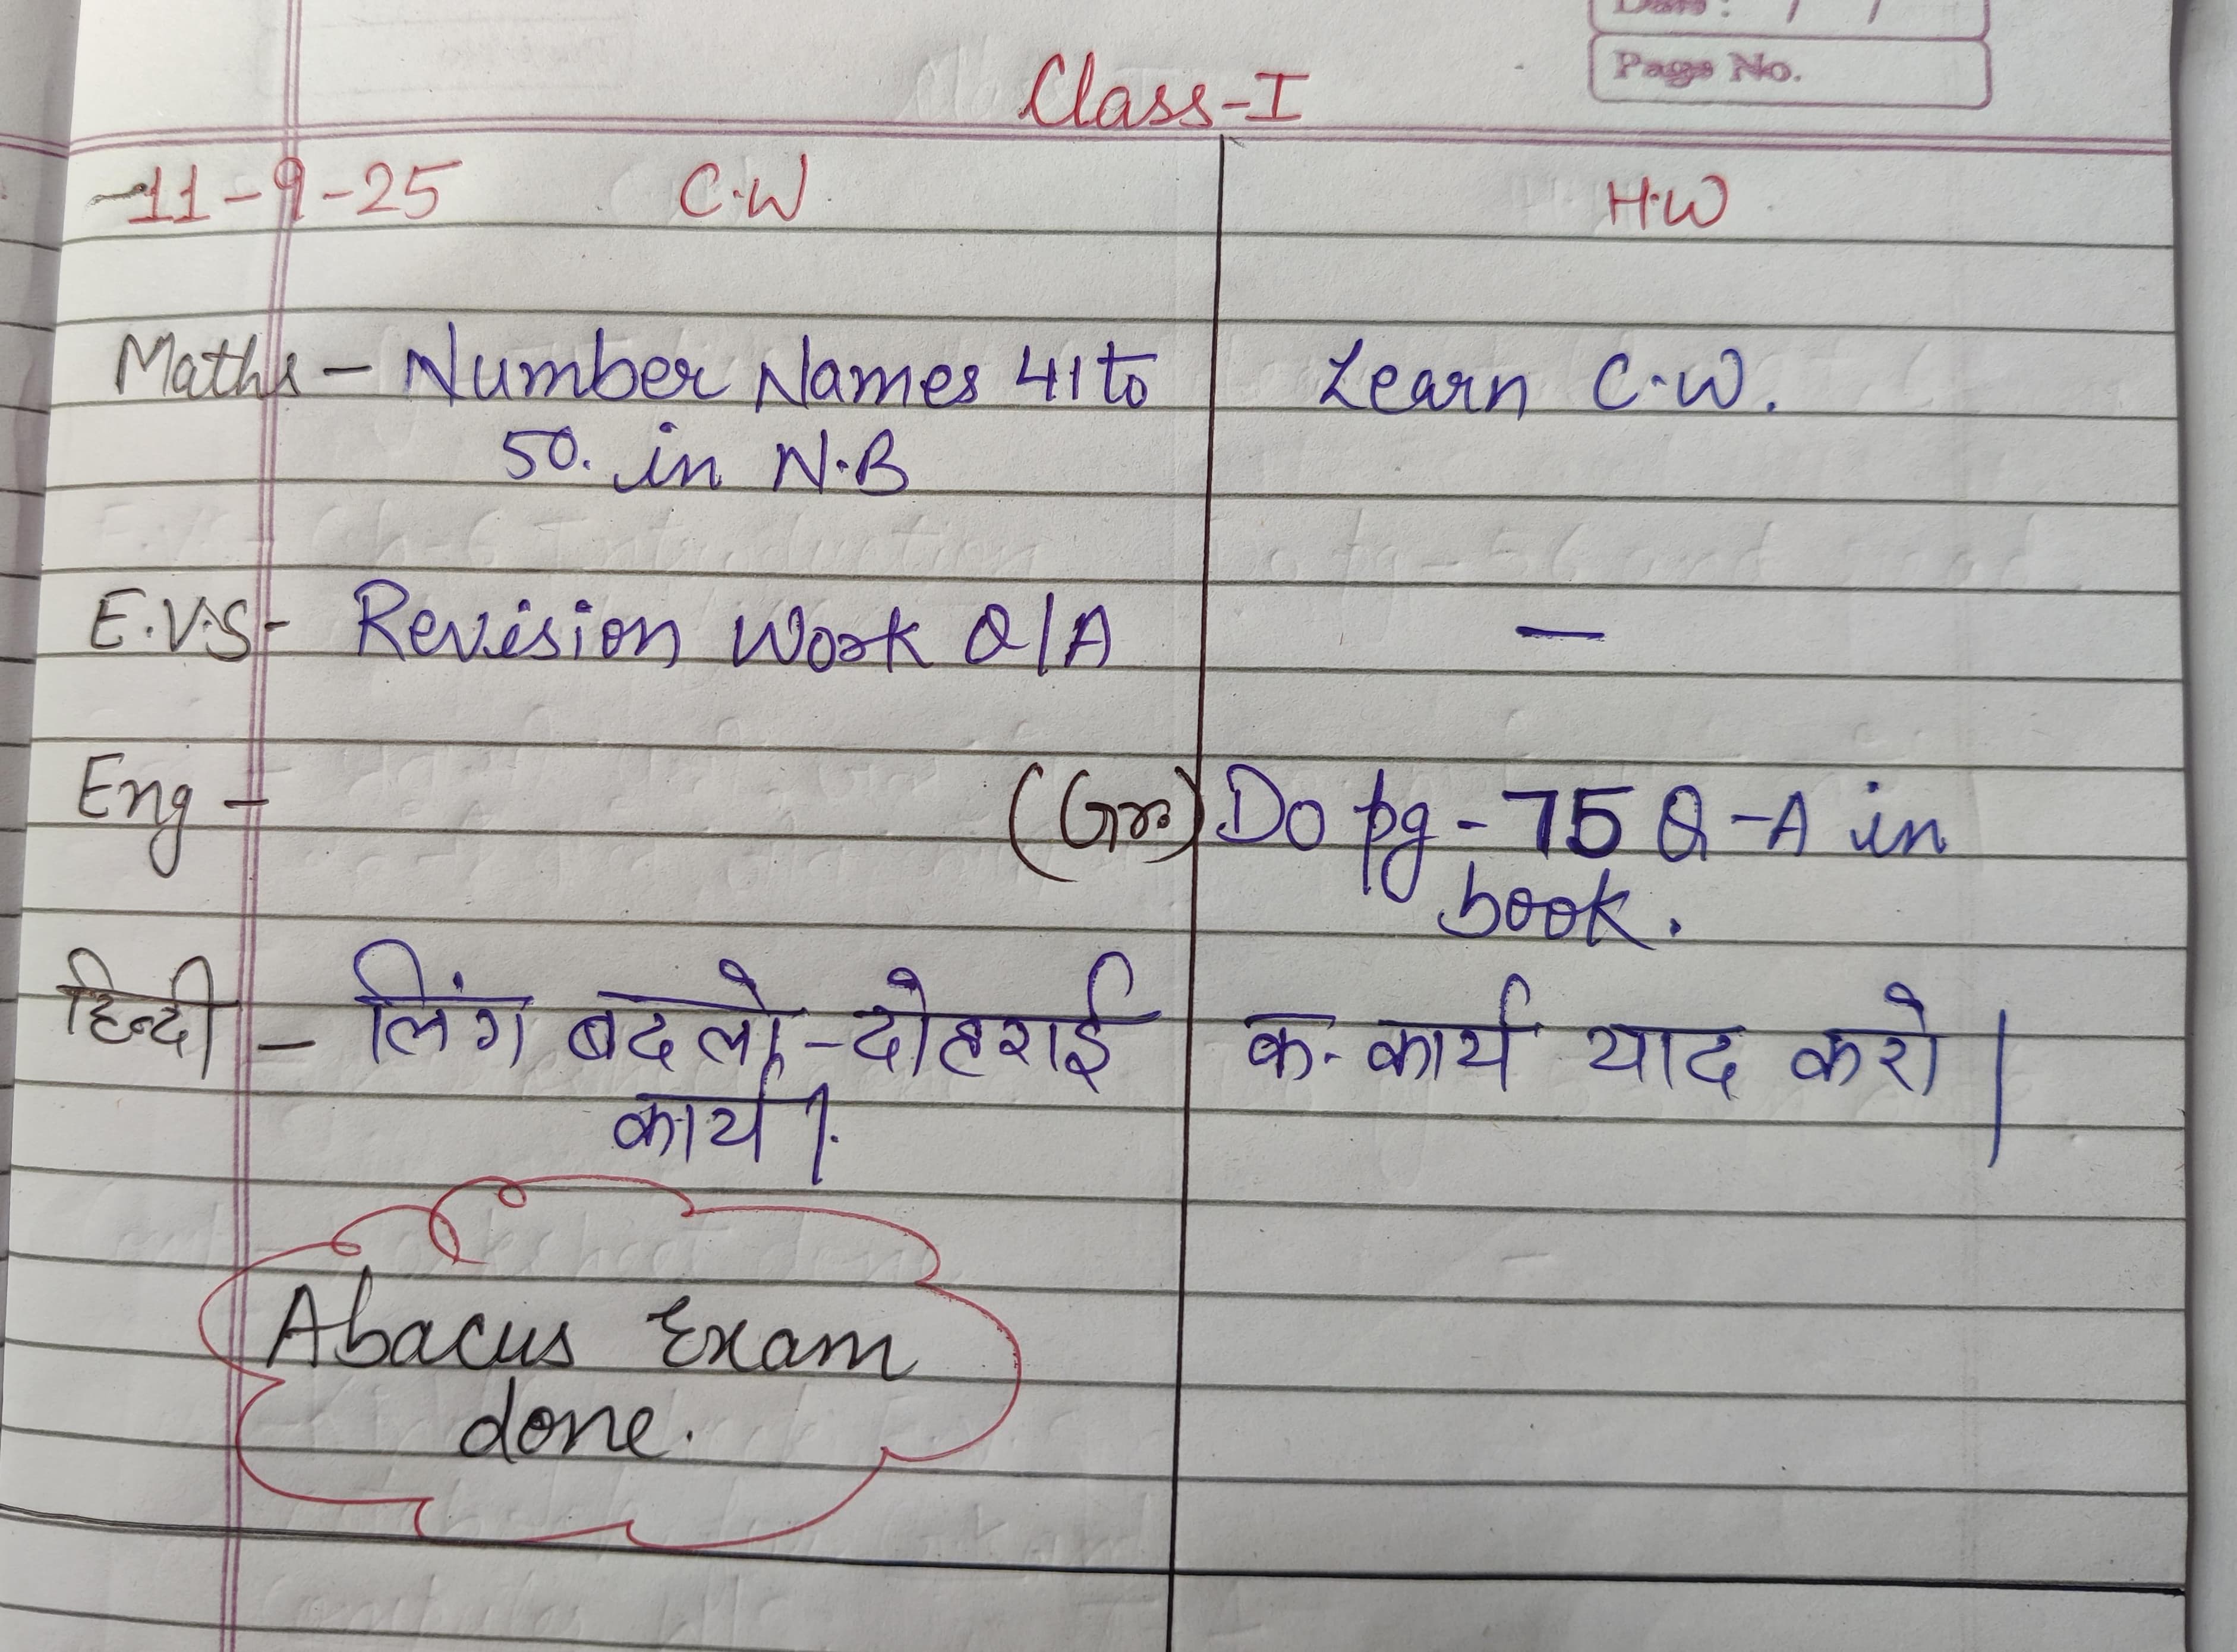 Date : / /
Page No.
Class-I
11-9-25 C.W H.W
Maths - Number Names 41 to Learn C.W.
50. in N.B
E.V.S - Revision Work Q/A —
Eng - (Gr.) Do pg - 75 Q-A in
book.
हिन्दी - लिंग बदलो - दोहराई क. कार्य याद करो |
कार्य |.
Abacus Exam
done.